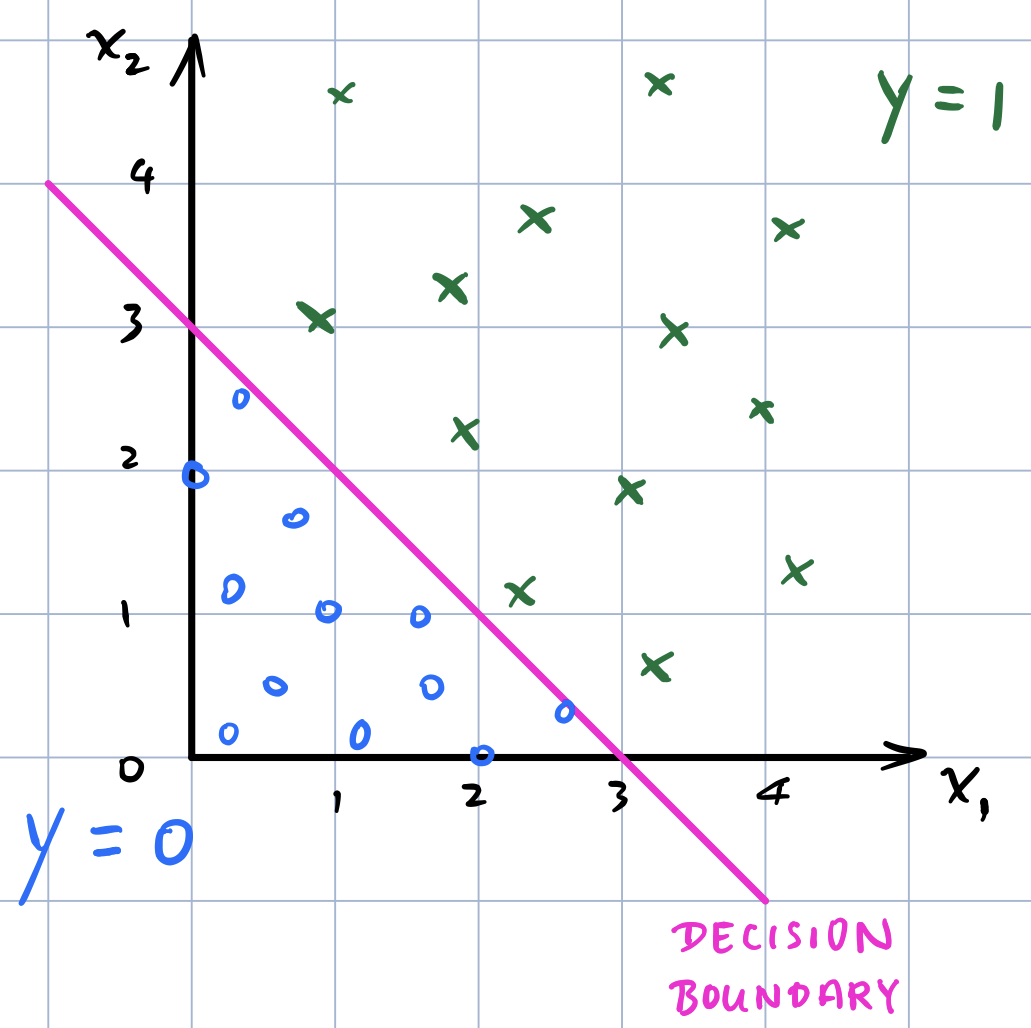 x₂
y = 1
4
3
2
1
0
1 2 3 4
x₁
y = 0
DECISION
BOUNDARY